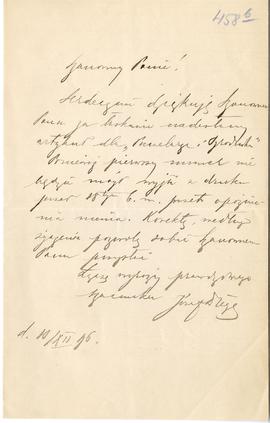 458 b
Szanowny Panie!
Serdecznie dziękuję Szanownemu
Panu za łaskawie nadesłany
artykuł dla
pierwszy numer nie
będzie mógł wyjść z druku
przed 18 b. m. przeto
Korektę, według
życzenia pozwolę sobie Szanownemu
Panu przesłać
Łączę wyrazy prawdziwego
szacunku Józef
d. 10/XII 96.